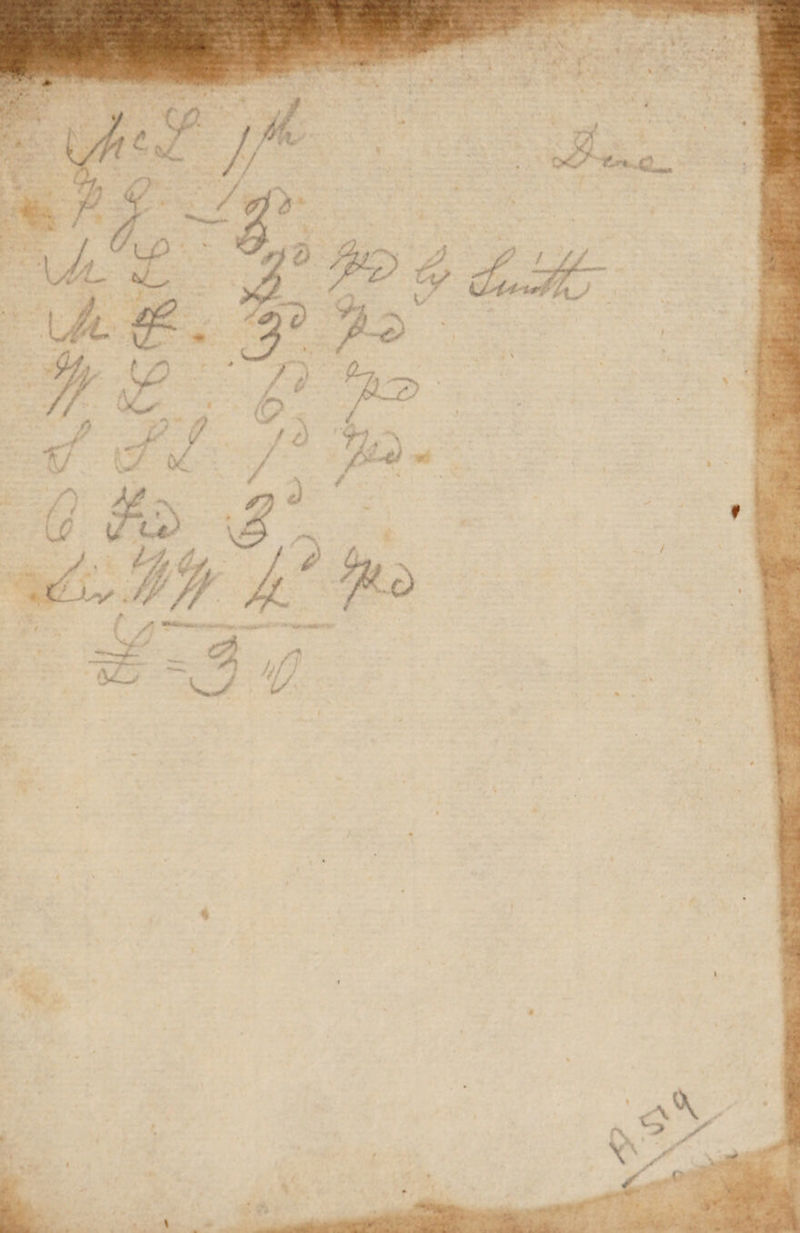 McL 1/ph Due
P G - 3d
M L 4d Pd by Smith
M L 3d Pd
W L 6d Pd
S S L 1d Pd
C Fid 3d
Sir WW 4d Pd
£ = 3 "0
A.519